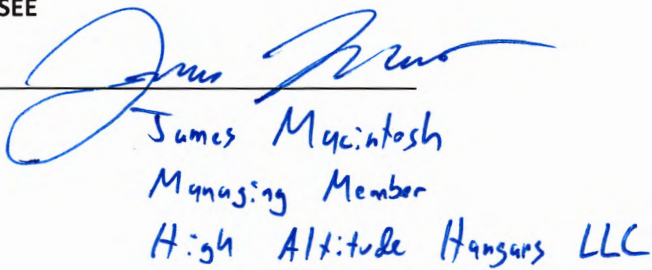 SEE
James Macintosh
Managing Member
High Altitude Hangars LLC